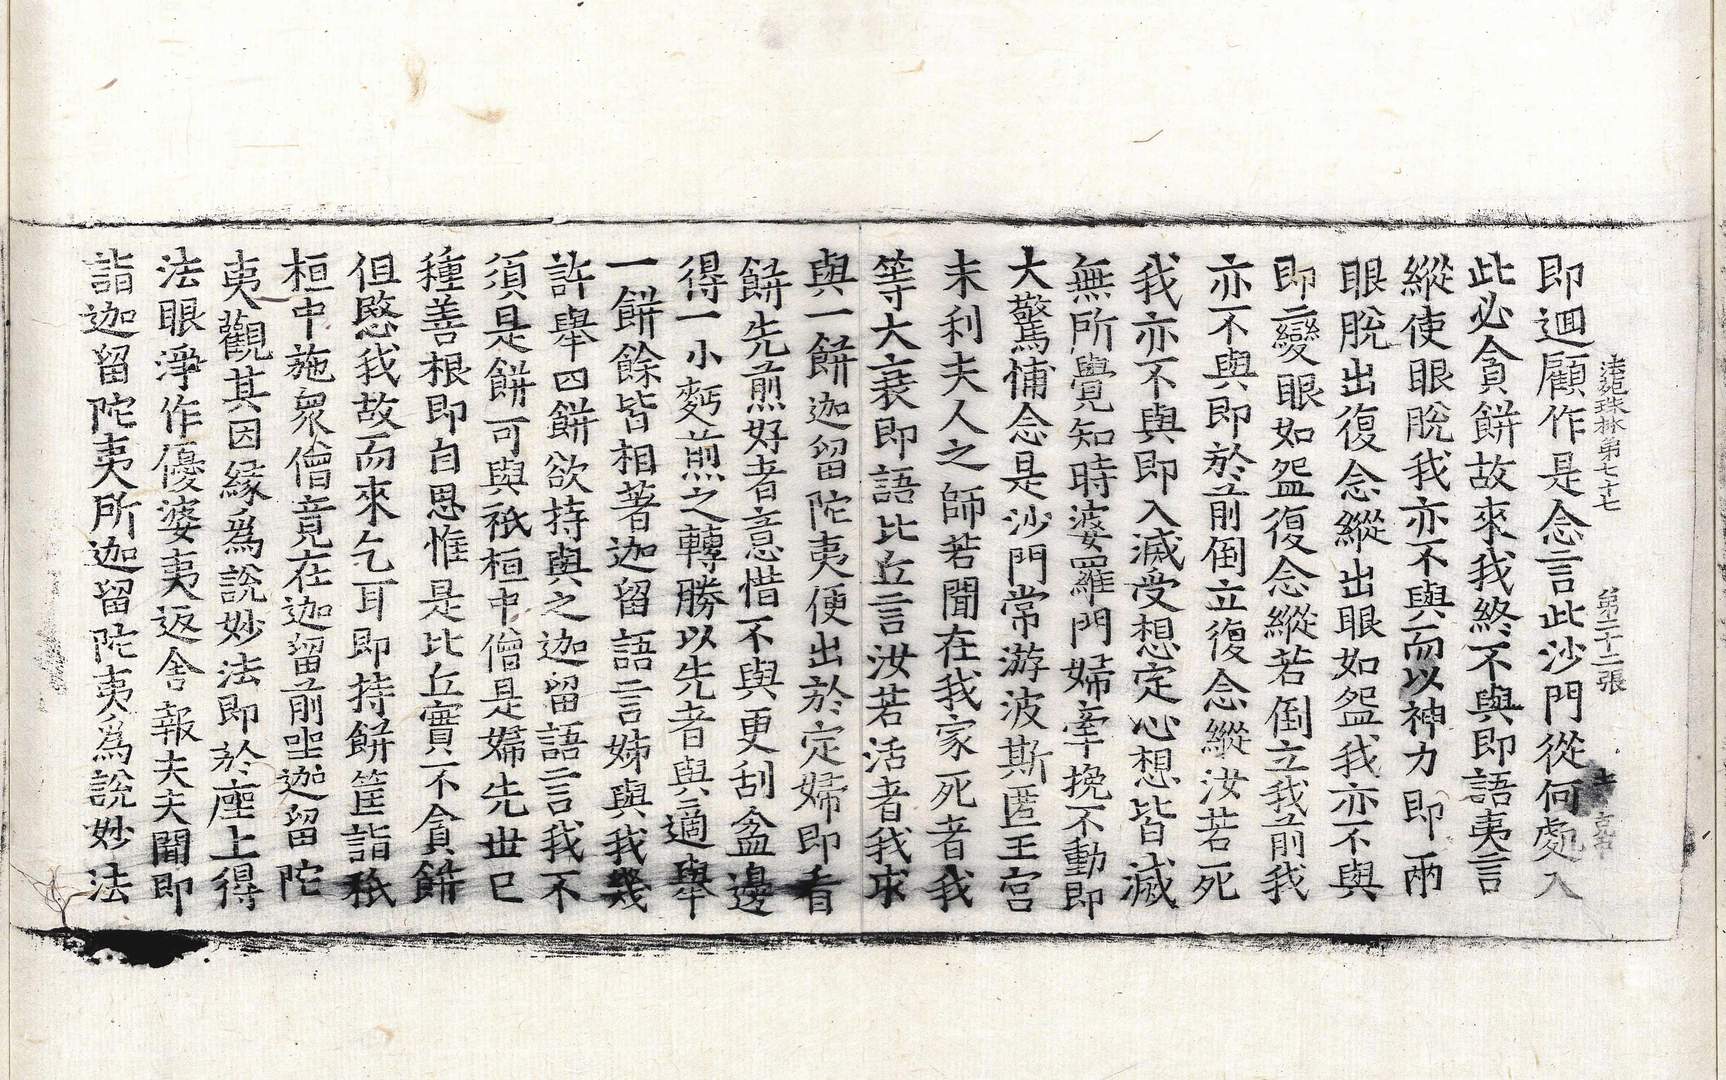 法苑珠林第七十七 第二十二張
即迴顧作是念言此沙門從何處入
此必貪餅故來我終不與即語夷言
縱使眼脫我亦不與而以神力即兩
眼脫出復念縱出眼如盌我亦不與
即變眼如盌復念縱若倒立我前我
亦不與即於前倒立復念縱汝若死
我亦不與即入滅受想定心想皆滅
無所覺知時婆羅門婦牽挽不動即
大驚怖念是沙門常游波斯匿王宮
末利夫人之師若聞在我家死者我
等大衰即語比丘言汝若活者我求
與一餅迦留陀夷便出於定婦即看
餅先煎好者意惜不與更刮盆邊
得一小麪煎之轉勝以先者與適舉
一餅餘皆相著迦留語言姊與我幾
許舉四餅欲持與之迦留語言我不
須是餅可與祇桓中僧是婦先世已
種善根即自思惟是比丘實不貪餅
但愍我故而來乞耳即持餅筐詣祇
桓中施衆僧竟在迦留前坐迦留陀
夷觀其因緣爲說妙法即於座上得
法眼淨作優婆夷返舍報夫夫聞即
詣迦留陀夷所迦留陀夷爲說妙法